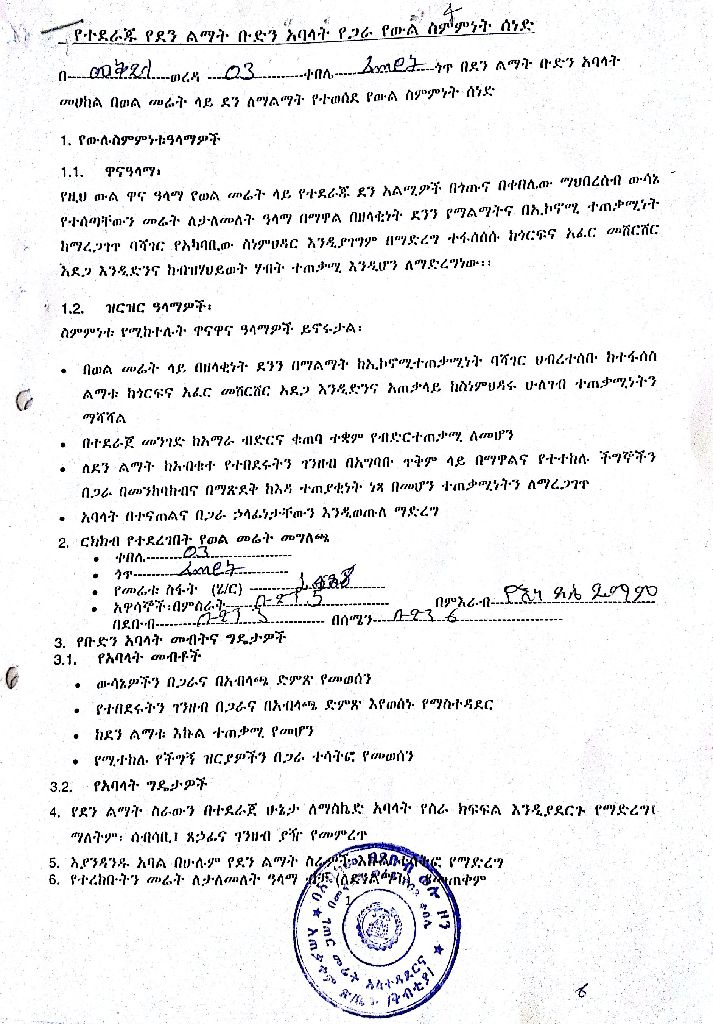 የተደራጁ የደን ልማት ቡድን አባላት የጋራ የውል ስምምነት ሰነድ
በ መቅደላ ወረዳ 03 ቀበሌ ጎጥ በደን ልማት ቡድን አባላት
መሀከል በወል መሬት ላይ ደን ለማልማት የተወሰደ የውል ስምምነት ሰነድ
1. የውሉስምምነቱዓላማዎች
1.1. ዋናዓላማ፡
የዚህ ውል ዋና ዓላማ የወል መሬት ላይ የተደራጁ ደን አልሚዎች በጎጡና በቀበሌው ማህበረሰብ ውሳኔ
የተሰጣቸውን መሬት ለታለመለት ዓላማ በማዋል በዘላቂነት ደንን የማልማትና በኢኮኖሚ ተጠቃሚነት
ከማረጋገጥ ባሻገር የአካባቢው ስነምህዳር እንዲያገግም በማድረግ ተፋሰሱ ከጎርፍና አፈር መሸርሸር
አደጋ እንዲድንና ከብዝሃህይወት ሃብት ተጠቃሚ እንዲሆን ለማድረግነው፡፡
1.2. ዝርዝር ዓላማዎች፡
ስምምነቱ የሚከተሉት ዋናዋና ዓላማዎች ይኖሩታል፡
• በወል መሬት ላይ በዘላቂነት ደንን በማልማት ከኢኮኖሚተጠቃሚነት ባሻገር ህብረተሰቡ ከተፋሰስ
ልማቱ ከጎርፍና አፈር መሸርሸር አደጋ እንዲድንና አጠቃላይ ከስነምህዳሩ ሁለገብ ተጠቃሚነትን
ማሻሻል
• በተደራጀ መንገድ ከአማራ ብድርና ቁጠባ ተቋም የብድርተጠቃሚ ለመሆን
• ለደን ልማት ከአብቁተ የተበደሩትን ገንዘብ በአግባቡ ጥቅም ላይ በማዋልና የተተከሉ ችግኞችን
በጋራ በመንከባከብና በማጽደቅ ከእዳ ተጠያቂነት ነጻ በመሆን ተጠቃሚነትን ለማረጋገጥ
• አባላት በተናጠልና በጋራ ኃላፊነታቸውን እንዲወጡ ማድረግ
2. ርክክብ የተደረገበት የወል መሬት መግለጫ
• ቀበሌ 03
• ጎጥ
• የመሬቱ ስፋት (ሄ/ር)
• አዋሳኞች በምስራቅ 5 በምእራብ
በደቡብ 5 በሰሜን 6
3. የቡድን አባላት መብትና ግዴታዎች
3.1. የአባላት መብቶች
• ውሳኔዎችን በጋራና በአብላጫ ድምጽ የመወሰን
• የተበደሩትን ገንዘብ በጋራና በአብላጫ ድምጽ እየወሰኑ የማስተዳደር
• ከደን ልማቱ እኩል ተጠቃሚ የመሆን
• የሚተከሉ የችግኝ ዝርያዎችን በጋራ ተሳትፎ የመወሰን
3.2. የአባላት ግዴታዎች
4. የደን ልማት ስራውን በተደራጀ ሁኔታ ለማስኬድ አባላት የስራ ክፍፍል እንዲያደርጉ የማድረግ፤
ማለትም፡ ሰብሳቢ፤ ጸኃፊና ገንዘብ ያዥ የመምረጥ
5. እያንዳንዱ አባል በሁሉም የደን ልማት ስራዎች የማድረግ
6. የተረከቡትን መሬት ለታለመለት ዓላማ
6